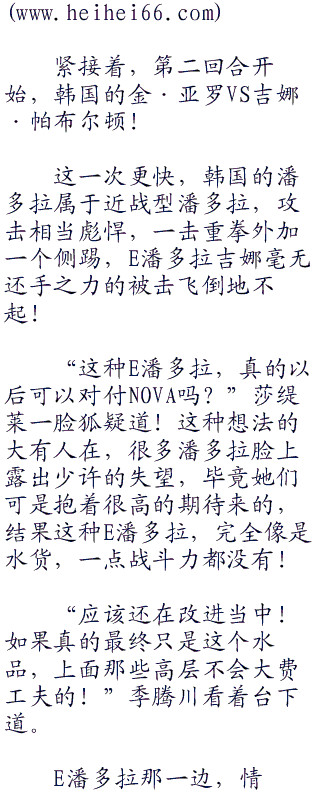 (www.heihei66.com)
紧接着，第二回合开
始，韩国的金·亚罗VS吉娜
·帕布尔顿！
这一次更快，韩国的潘
多拉属于近战型潘多拉，攻
击相当彪悍，一击重拳外加
一个侧踢，E潘多拉吉娜毫无
还手之力的被击飞倒地不
起！
“这种E潘多拉，真的以
后可以对付NOVA吗？”莎缇
莱一脸狐疑道！这种想法的
大有人在，很多潘多拉脸上
露出少许的失望，毕竟她们
可是抱着很高的期待来的，
结果这种E潘多拉，完全像是
水货，一点战斗力都没有！
“应该还在改进当中！
如果真的最终只是这个水
品，上面那些高层不会大费
工夫的！”季腾川看着台下
道。
E潘多拉那一边，情